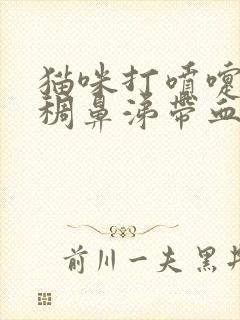 猫咪打喷嚏
稠鼻涕带血
前川一夫 黑